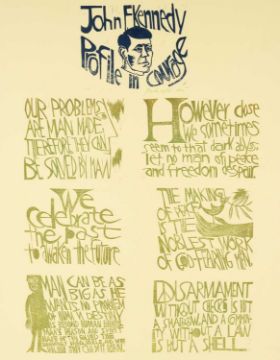 John F Kennedy
Profile in Courage
OUR PROBLEMS
ARE MAN MADE,
THEREFORE THEY CAN
BE SOLVED BY MAN
However close
we sometimes
seem to that dark abyss
let no man of peace
and freedom despair.
We
celebrate
the past
to awaken the future
THE MAKING
OF PEACE
IS THE
NOBLEST WORK
OF GOD FEARING MEN
MAN CAN BE AS
BIG AS HE
WANTS. NO PROBLEM
OF HUMAN DESTINY
IS BEYOND HUMAN BEINGS
DISARMAMENT
WITHOUT CHECKS IS BUT
A SHADOW, AND A COMMUNITY
WITHOUT LAW
IS BUT A SHELL